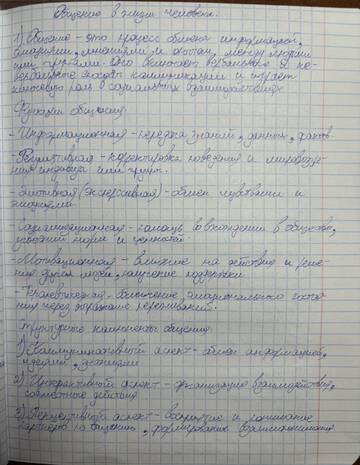 Общение в жизни человека.
1) Общение - это процесс обмена информацией,
эмоциями, мнениями и опытом, между людьми
или группами. Оно включает вербальные и не-
вербальные способы коммуникации и играет
ключевую роль в социальных взаимодействиях
Функции общения
- Информационная - передача знаний, данных, фактов
- Регулятивная - корректировка поведения и мировоззре-
ния индивида или групп.
- Эмотивная (экспрессивная) - обмен чувствами и
эмоциями
- Социализационная - помощь во вхождении в общество,
усвоении норм и ценностей
- Мотивационная - влияние на действия и реше-
ния других людей, получение поддержки
- Терапевтическая - облегчение эмоционального состоя-
ния через выражение переживаний.
Структурные компоненты общения
1) Коммуникативный аспект - обмен информацией,
идеями, эмоциями
2) Интерактивный аспект - организация взаимодействия,
совместные действия
3) Перцептивный аспект - восприятие и понимание
партнёров по общению, формирование взаимопонимания